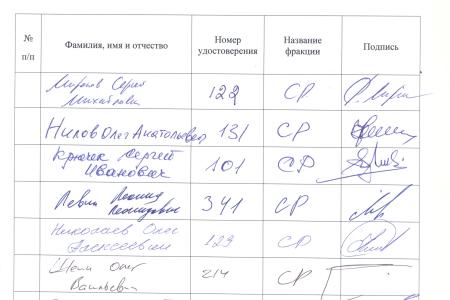 № п/п
Фамилия, имя и отчество
Номер удостоверения
Название фракции
Подпись
Миронов Сергей Михайлович 122 СР
Нилов Олег Анатольевич 131 СР
Крючек Сергей Иванович 101 СР
Левин Леонид Леонидович 341 СР
Николаев Олег Алексеевич 129 СР
Шеин Олег Васильевич 214 СР